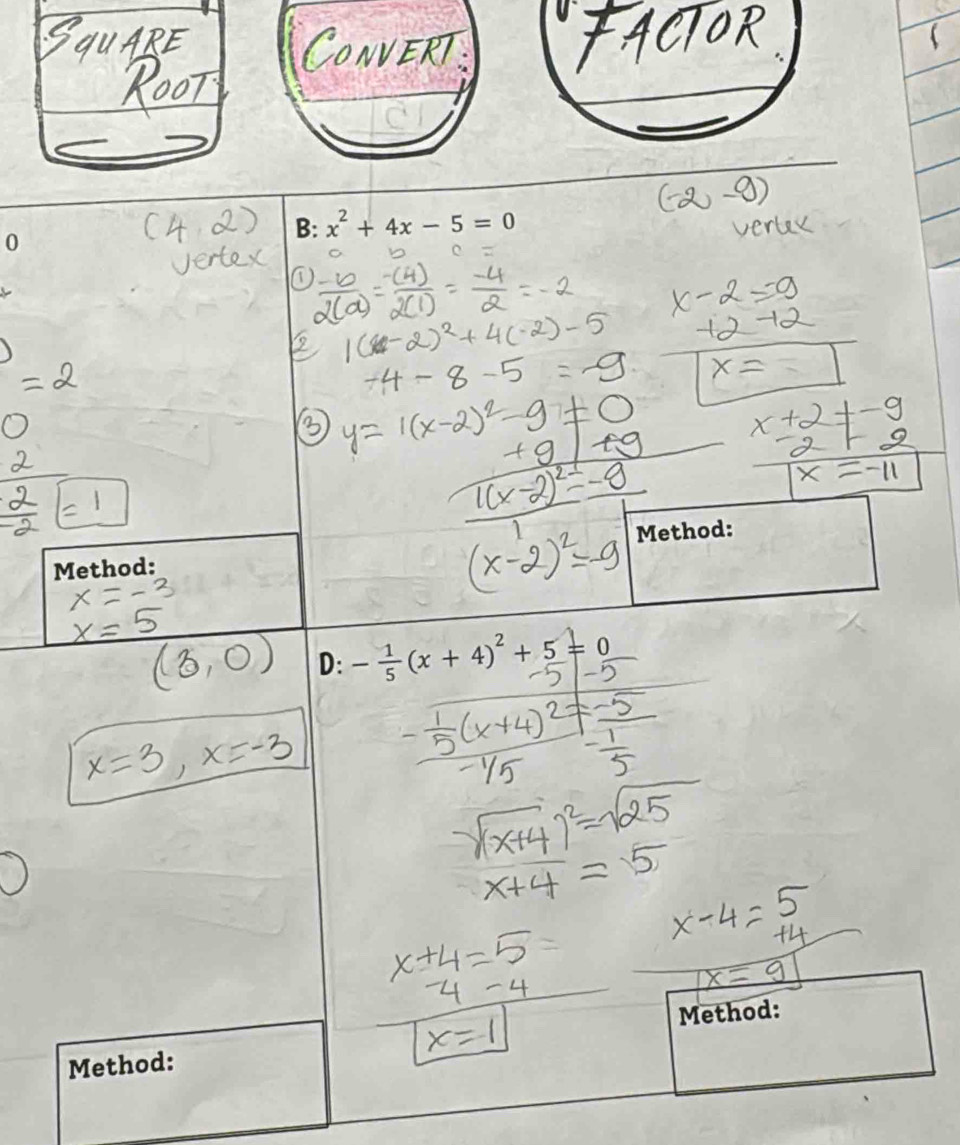 SQUARE ROOT
CONVERT
FACTOR
0
(4, 2)
vertex
= 2
0
2
2/-2 = 1
Method:
x = -3
x = 5
B: x² + 4x − 5 = 0
a b c =
(-2, -9)
vertex
① -b/2(a) = -(4)/2(1) = -4/2 = -2
② 1(-2)² + 4(-2) - 5
+4 - 8 - 5 = -9
③ y = 1(x-2)² - 9 = 0
+9 | +9
1(x-2)² = -9
1
(x-2)² = -9
x - 2 = -9
+2 +2
x =
x + 2 = -9
-2 - 2
x = -11
Method:
(3, 0)
x = 3, x = -3
Method:
D: − 1/5 (x + 4)² + 5 = 0
-5 | -5
-1/5 (x+4)² = -5
-1/5 -1/5
√(x+4)² = √25
x+4 = 5
x+4 = 5 =
-4 -4
x = 1
x - 4 = 5
+4
x = 9
Method: